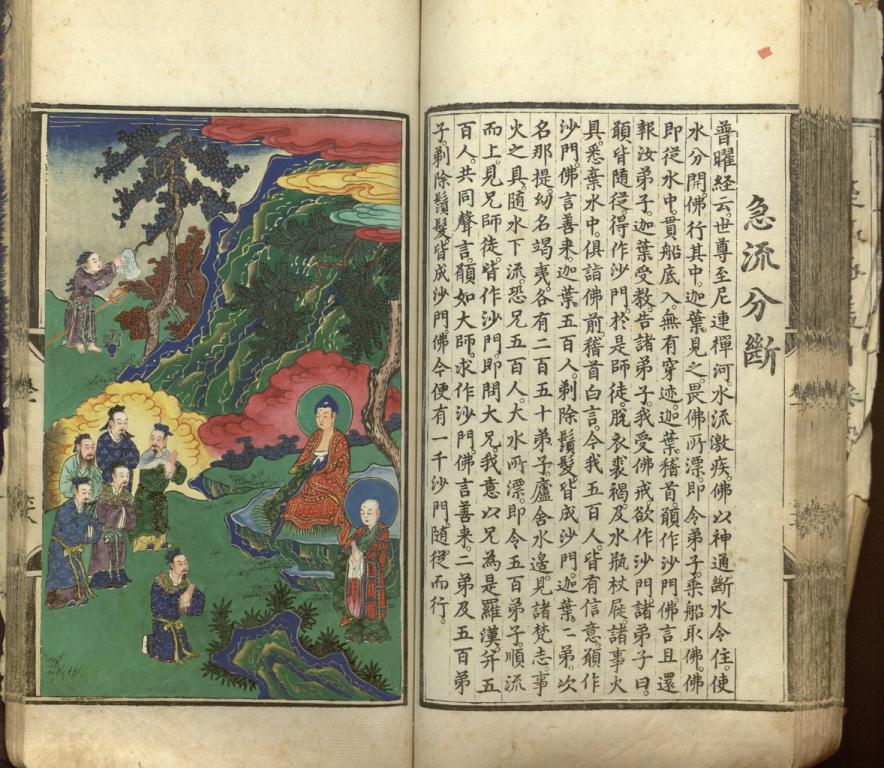 急流分斷
普曜経云。世尊至尼連禪河。水流激疾。佛以神通斷水令住。使
水分開。佛行其中。迦葉見之。畏佛所漂。即令弟子。乘船取佛。佛
即從水中。貫船底入。無有穿迹。迦葉稽首。願作沙門。佛言且還
報汝弟子。迦葉受教。告諸弟子。我受佛戒欲作沙門。諸弟子曰。
願皆隨從得作沙門。於是師徒。脫衣裘褐。及水瓶杖屣。諸事火
具。悉棄水中。俱詣佛前稽首白言。今我五百人。皆有信意。願作
沙門。佛言善来。迦葉。五百人。剃除鬚髮。皆成沙門。迦葉二弟。次
名那提。幼名竭夷。各有二百五十弟子。廬舍水邊。見諸梵志。事
火之具。随水下流。恐兄五百人。大水所漂。即令五百弟子。順流
而上。見兄師徒。皆作沙門。即問大兄。我意以兄為是羅漢。并五
百人。共同聲言。願如大師。求作沙門。佛言善来。二弟及五百弟
子。剃除鬚髮。皆成沙門。佛令便有一千沙門。随從而行。